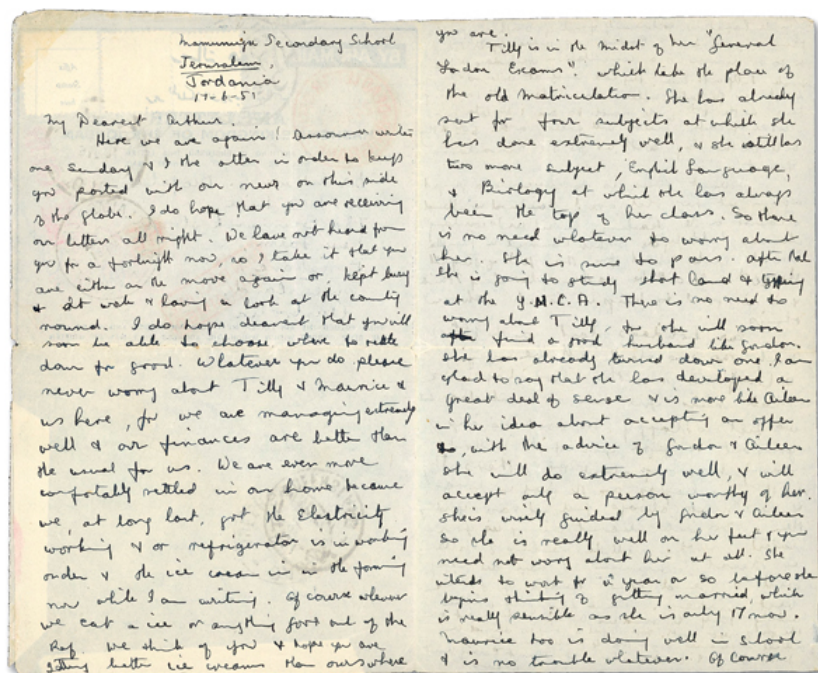 Mamuniya Secondary School
Jerusalem,
Jordania
17-6-51
My Dearest Arthur.
Here we are again! write
one Sunday & I the other in order to keep
you posted with our news on this side
of the globe. I do hope that you are receiving
our letters all right. We have not heard from
you for a fortnight now, so I take it that you
are either on the move again or kept busy
& at work & having a look at the country
round. I do hope dearest that you will
soon be able to choose where to settle
down for good. Whatever you do please
never worry about Tilly & Maurice &
us here, for we are managing extremely
well & our finances are better than
the usual for us. We are even more
comfortably settled in our home because
we, at long last, got the Electricity
working & our refrigerator is in working
order & the ice cream is in the forming
now while I am writing. Of course whenever
we eat a ice or anything good out of the
Ref. we think of you & hope you are
getting better ice creams than ours where
you are.
Tilly is in the midst of her "General
London Exams". which take the place of
the old Matriculation. She has already
sent for four subjects at which she
has done extremely well, & she still has
two more subject, English Language,
& Biology at which she has always
been the top of her class. So there
is no need whatever to worry about
her. She is sure to pass. After that
she is going to study short hand & typing
at the Y.M.C.A. There is no need to
worry about Tilly, for she will soon
find a good husband like Gordon.
She has already turned down one. I am
glad to say that she has developed a
great deal of sense & is more like Aileen
in her idea about accepting an offer
with the advice of Gordon & Aileen
she will do extremely well, & will
accept only a person worthy of her.
She is wisely guided by Gordon & Aileen
so she is really well on her feet & you
need not worry about her at all. She
intends to work for a year or so before she
begins thinking of getting married, which
is really sensible as she is only 17 now.
Maurice too is doing well in School
& is no trouble whatever. Of course